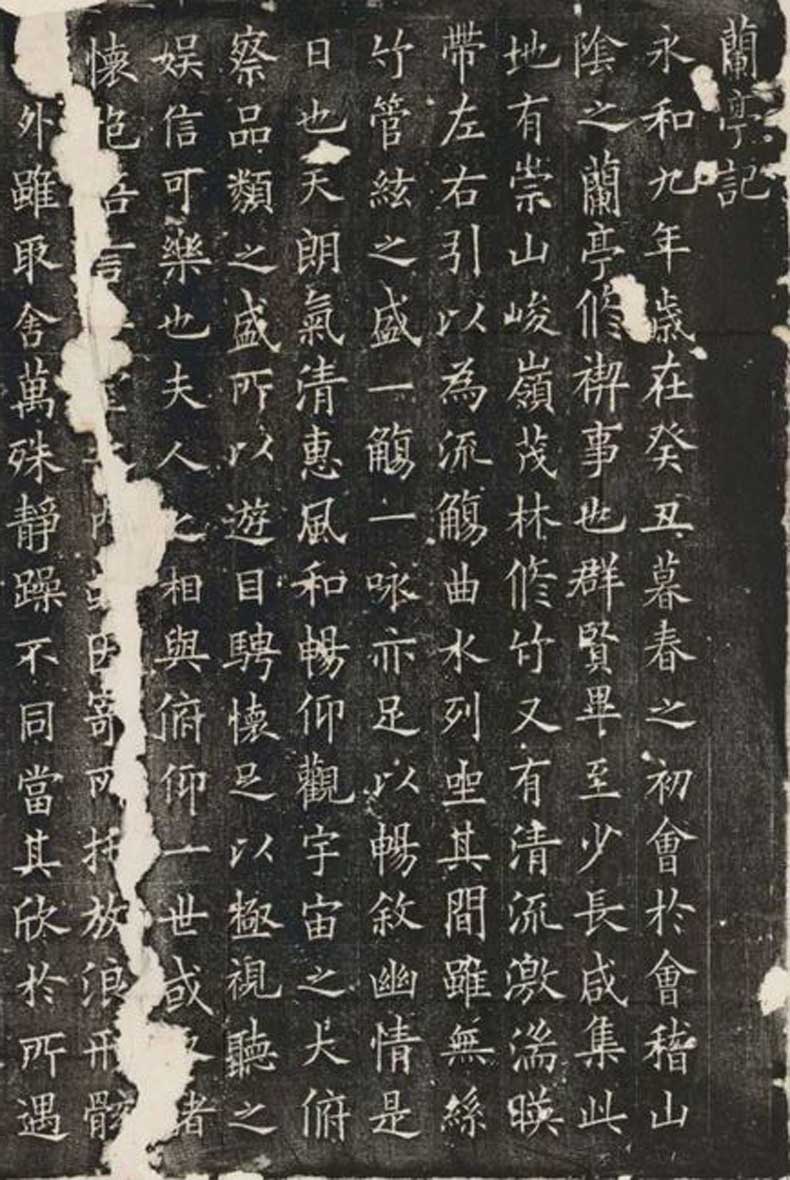 蘭亭記
永和九年歲在癸丑暮春之初會於會稽山
陰之蘭亭修禊事也群賢畢至少長咸集此
地有崇山峻嶺茂林修竹又有清流激湍暎
帶左右引以為流觴曲水列坐其間雖無絲
竹管絃之盛一觴一咏亦足以暢敘幽情是
日也天朗氣清惠風和暢仰觀宇宙之大俯
察品類之盛所以遊目騁懷足以極視聽之
娛信可樂也夫人之相與俯仰一世或諸
懷抱言內因寄所托放浪形骸
外雖取舍萬殊靜躁不同當其欣於所遇